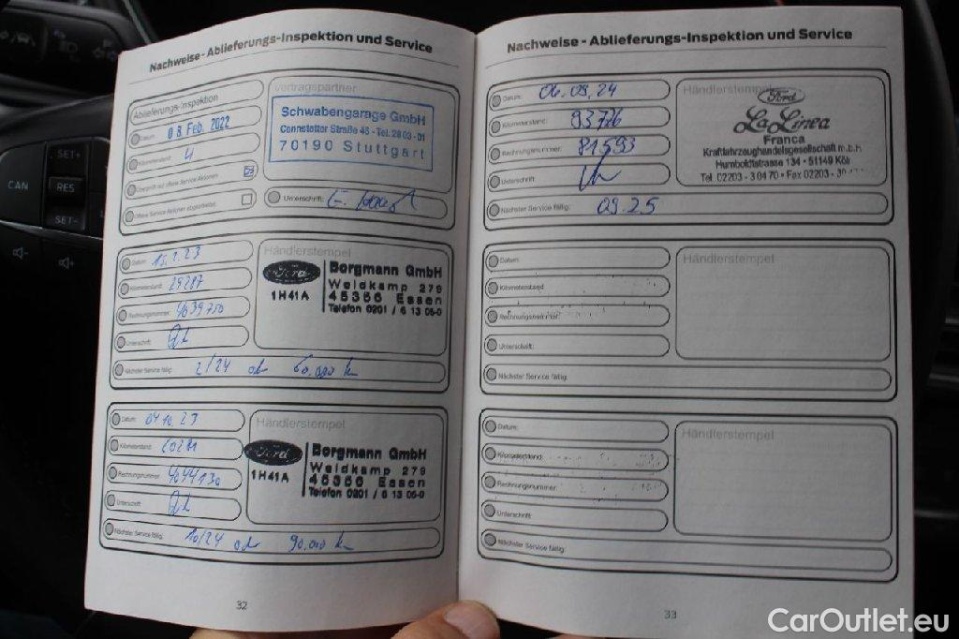 Nachweise - Ablieferungs-Inspektion und Service
Ablieferungs-Inspektion
Datum: 08. Feb. 2022
Kilometerstand: 4
Vertragspartner
Schwabengarage GmbH
Cannstatter Straße 46 - Tel. 28 03 - 01
70190 Stuttgart
Unterschrift:
Datum: 15.1.23
Kilometerstand: 29217
Rechnungsnummer: 4039750
Unterschrift:
Nächster Service fällig: 2/24 od 60.000 km
Händlerstempel
Ford
1H41A
Borgmann GmbH
Weidkamp 279
45356 Essen
Telefon 0201 / 6 13 05-0
Datum: 04.10.23
Kilometerstand:
Rechnungsnummer: 4044130
Unterschrift:
Nächster Service fällig: 10/24 od 90.000 km
Händlerstempel
Ford
1H41A
Borgmann GmbH
Weidkamp 279
45356 Essen
Telefon 0201 / 6 13 05-0
32
Nachweise - Ablieferungs-Inspektion und Service
Datum: 06.09.24
Kilometerstand: 93776
Rechnungsnummer: 81593
Unterschrift:
Nächster Service fällig: 09.25
Händlerstempel
Ford
La Linea
Franca
Kraftfahrzeughandelsgesellschaft m.b.h.
Humboldtstrasse 134 - 51149 Köl
Tel. 02203 - 3 04 70 • Fax 02203 -
Datum:
Kilometerstand:
Rechnungsnummer:
Unterschrift:
Nächster Service fällig:
Händlerstempel
Datum:
Kilometerstand:
Rechnungsnummer:
Unterschrift:
Nächster Service fällig:
Händlerstempel
33
CAN
SET+
RES
SET-
CarOutlet.eu